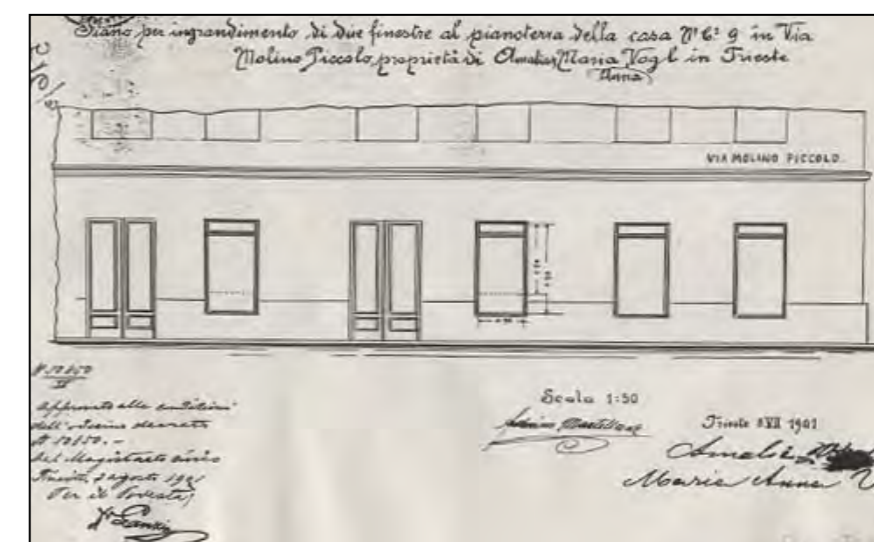 Piano per ingrandimento di due finestre al pianoterra della casa Nº Cº 9 in Via
Molino Piccolo, proprietà di Amalia Maria Vogl in Trieste
Anna
VIA MOLINO PICCOLO.
Scala 1:50
Trieste VII 1901
Approvato alle condizioni
dell'odierno decreto
N 10150.-
del Magistrato civico
Trieste, 2 agosto 1901
Per il Podestà
Amalia
Maria Anna V